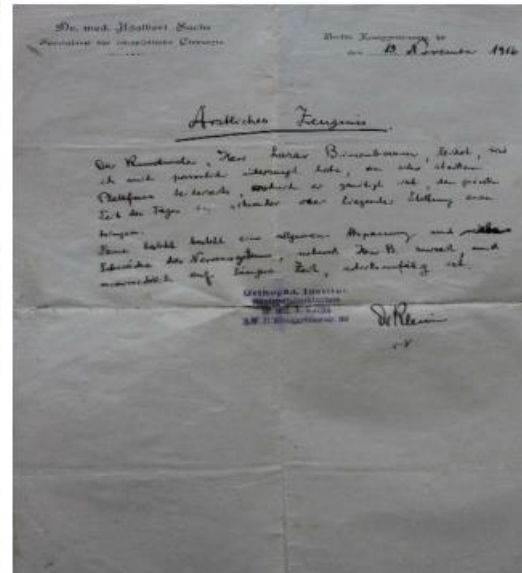 Dr. med. Adalbert Sachs
Spezialarzt für orthopädische Chirurgie
Berlin, Königgrätzerstr.
den 19. November 1916
Ärztliches Zeugnis.
Der Rundende, Herr Lazar Birnenbaum, leidet, wie
ich mich persönlich überzeugt habe, an sehr starken
Plattfüssen beiderseits, wodurch er genötigt ist, den grössten
Teil des Tages in sitzender oder liegender Stellung zuzu
bringen.
Ferner besteht eine allgemeine Abspannung und
Schwäche des Nervensystems, wodurch Herr B. zurzeit und
auf längere Zeit, arbeitsunfähig ist.
Orthopäd. Institut
Dr. med. A. Sachs
S.W. Königgrätzerstr.
Dr
i.V.